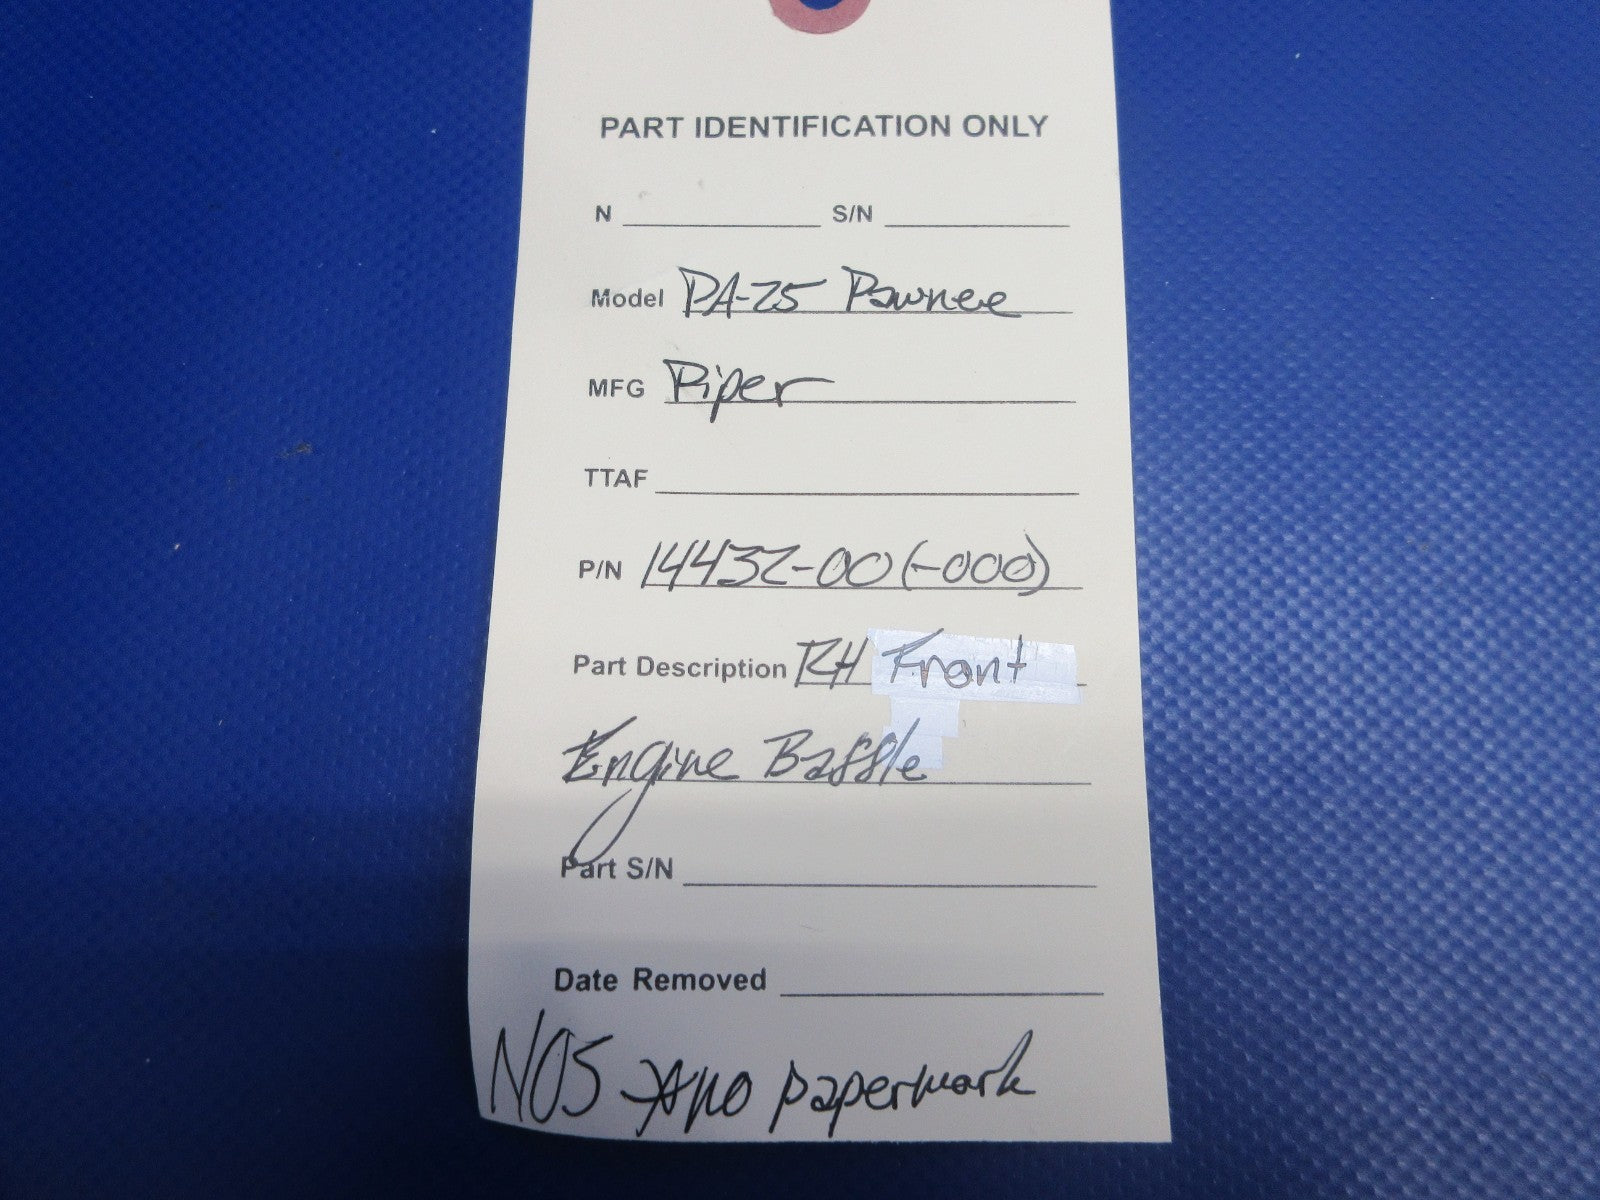 PART IDENTIFICATION ONLY
N S/N
Model PA-25 Pawnee
MFG Piper
TTAF
P/N 14432-00 (-000)
Part Description RH Front
Engine Baffle
Part S/N
Date Removed
NOS no paperwork